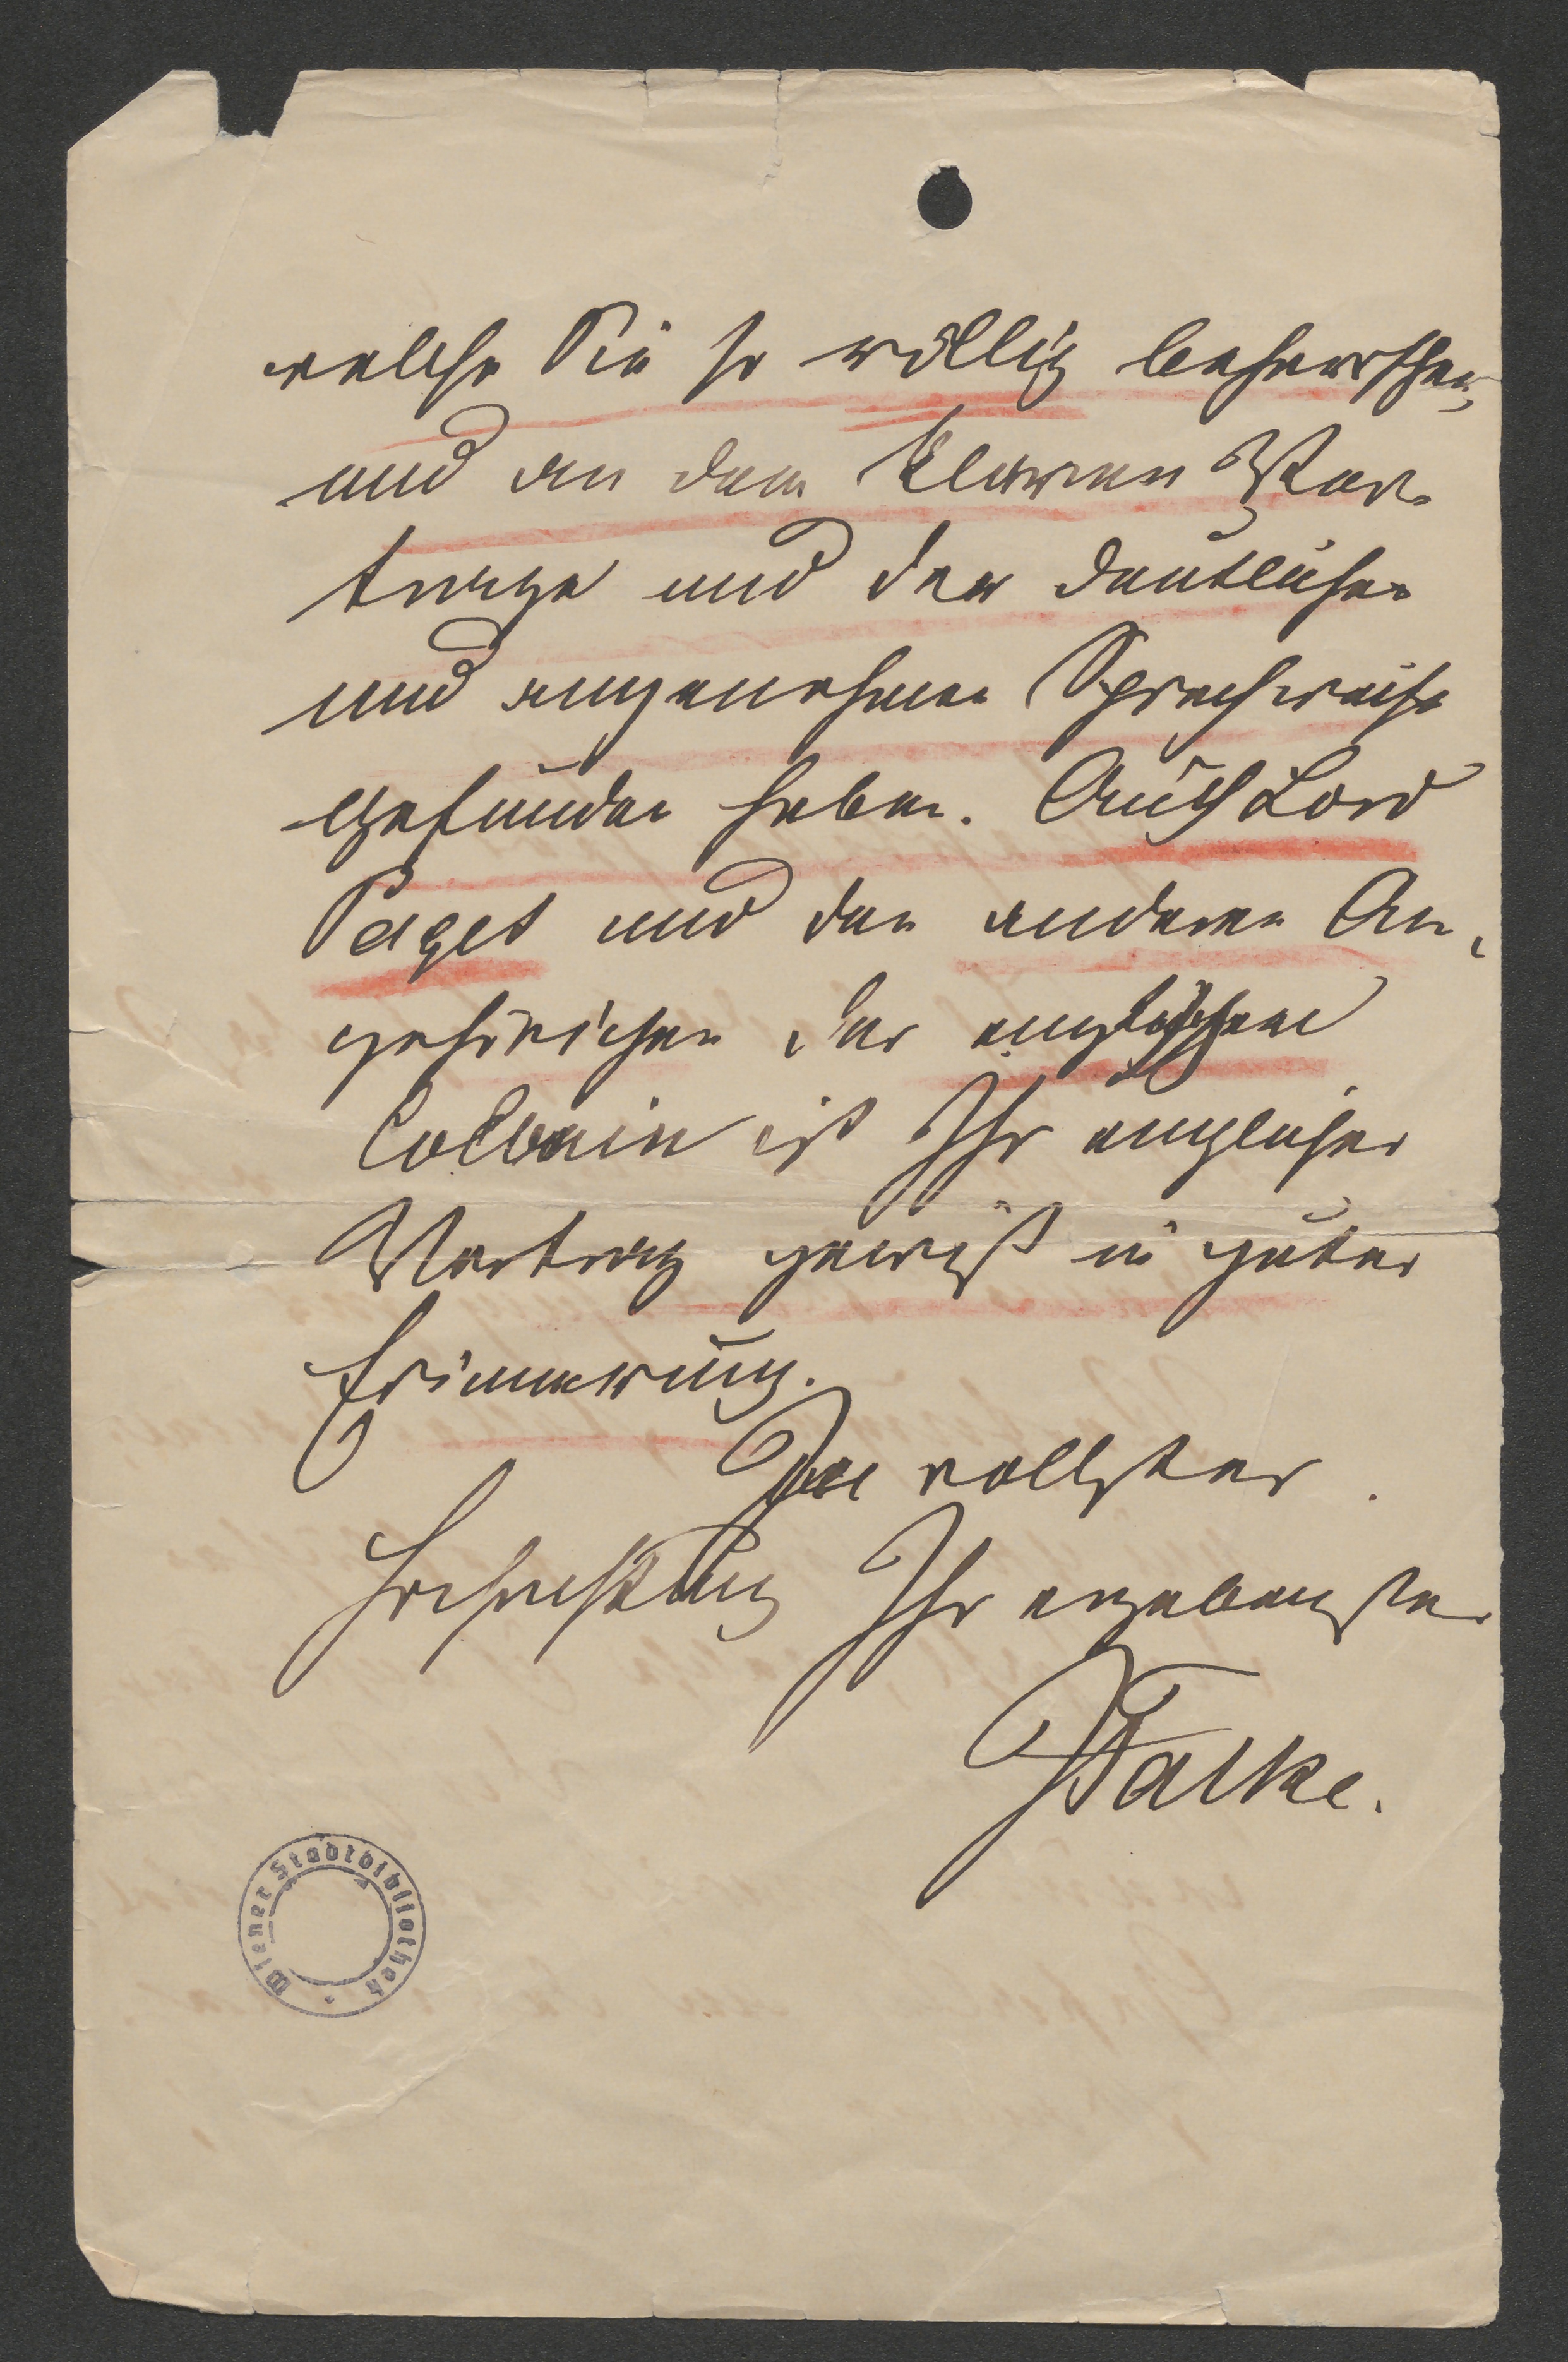 welche Sie so völlig beherrschen,
und an dem klaren Vor-
trage und der deutlichen
und angenehmen Sprachweise
gefunden haben. Auch Lord
Paget und den anderen An-
gehörigen der englischen
Colonie ist Ihr englischer
Vortrag gewiß in guter
Erinnerung.
In vollster
Hochachtung Ihr ergebenster
JFalke.
Wiener Stadtbibliothek